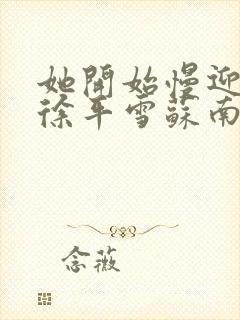 她開始慢迎
徐平雪蘇南
念薇